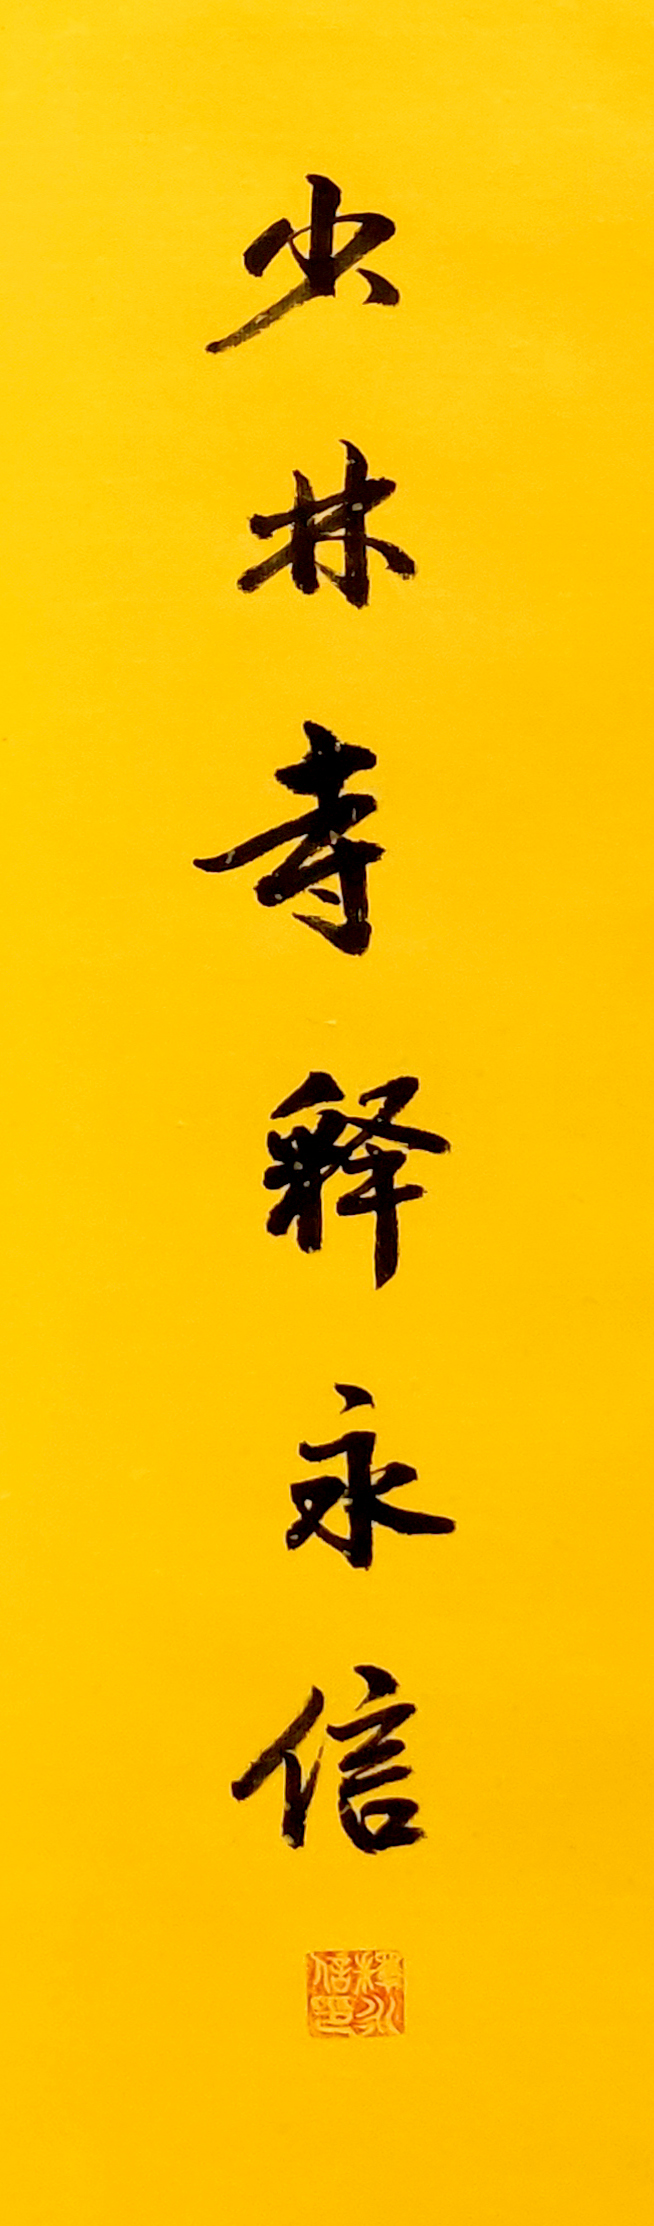 少林寺释永信
釋永信印